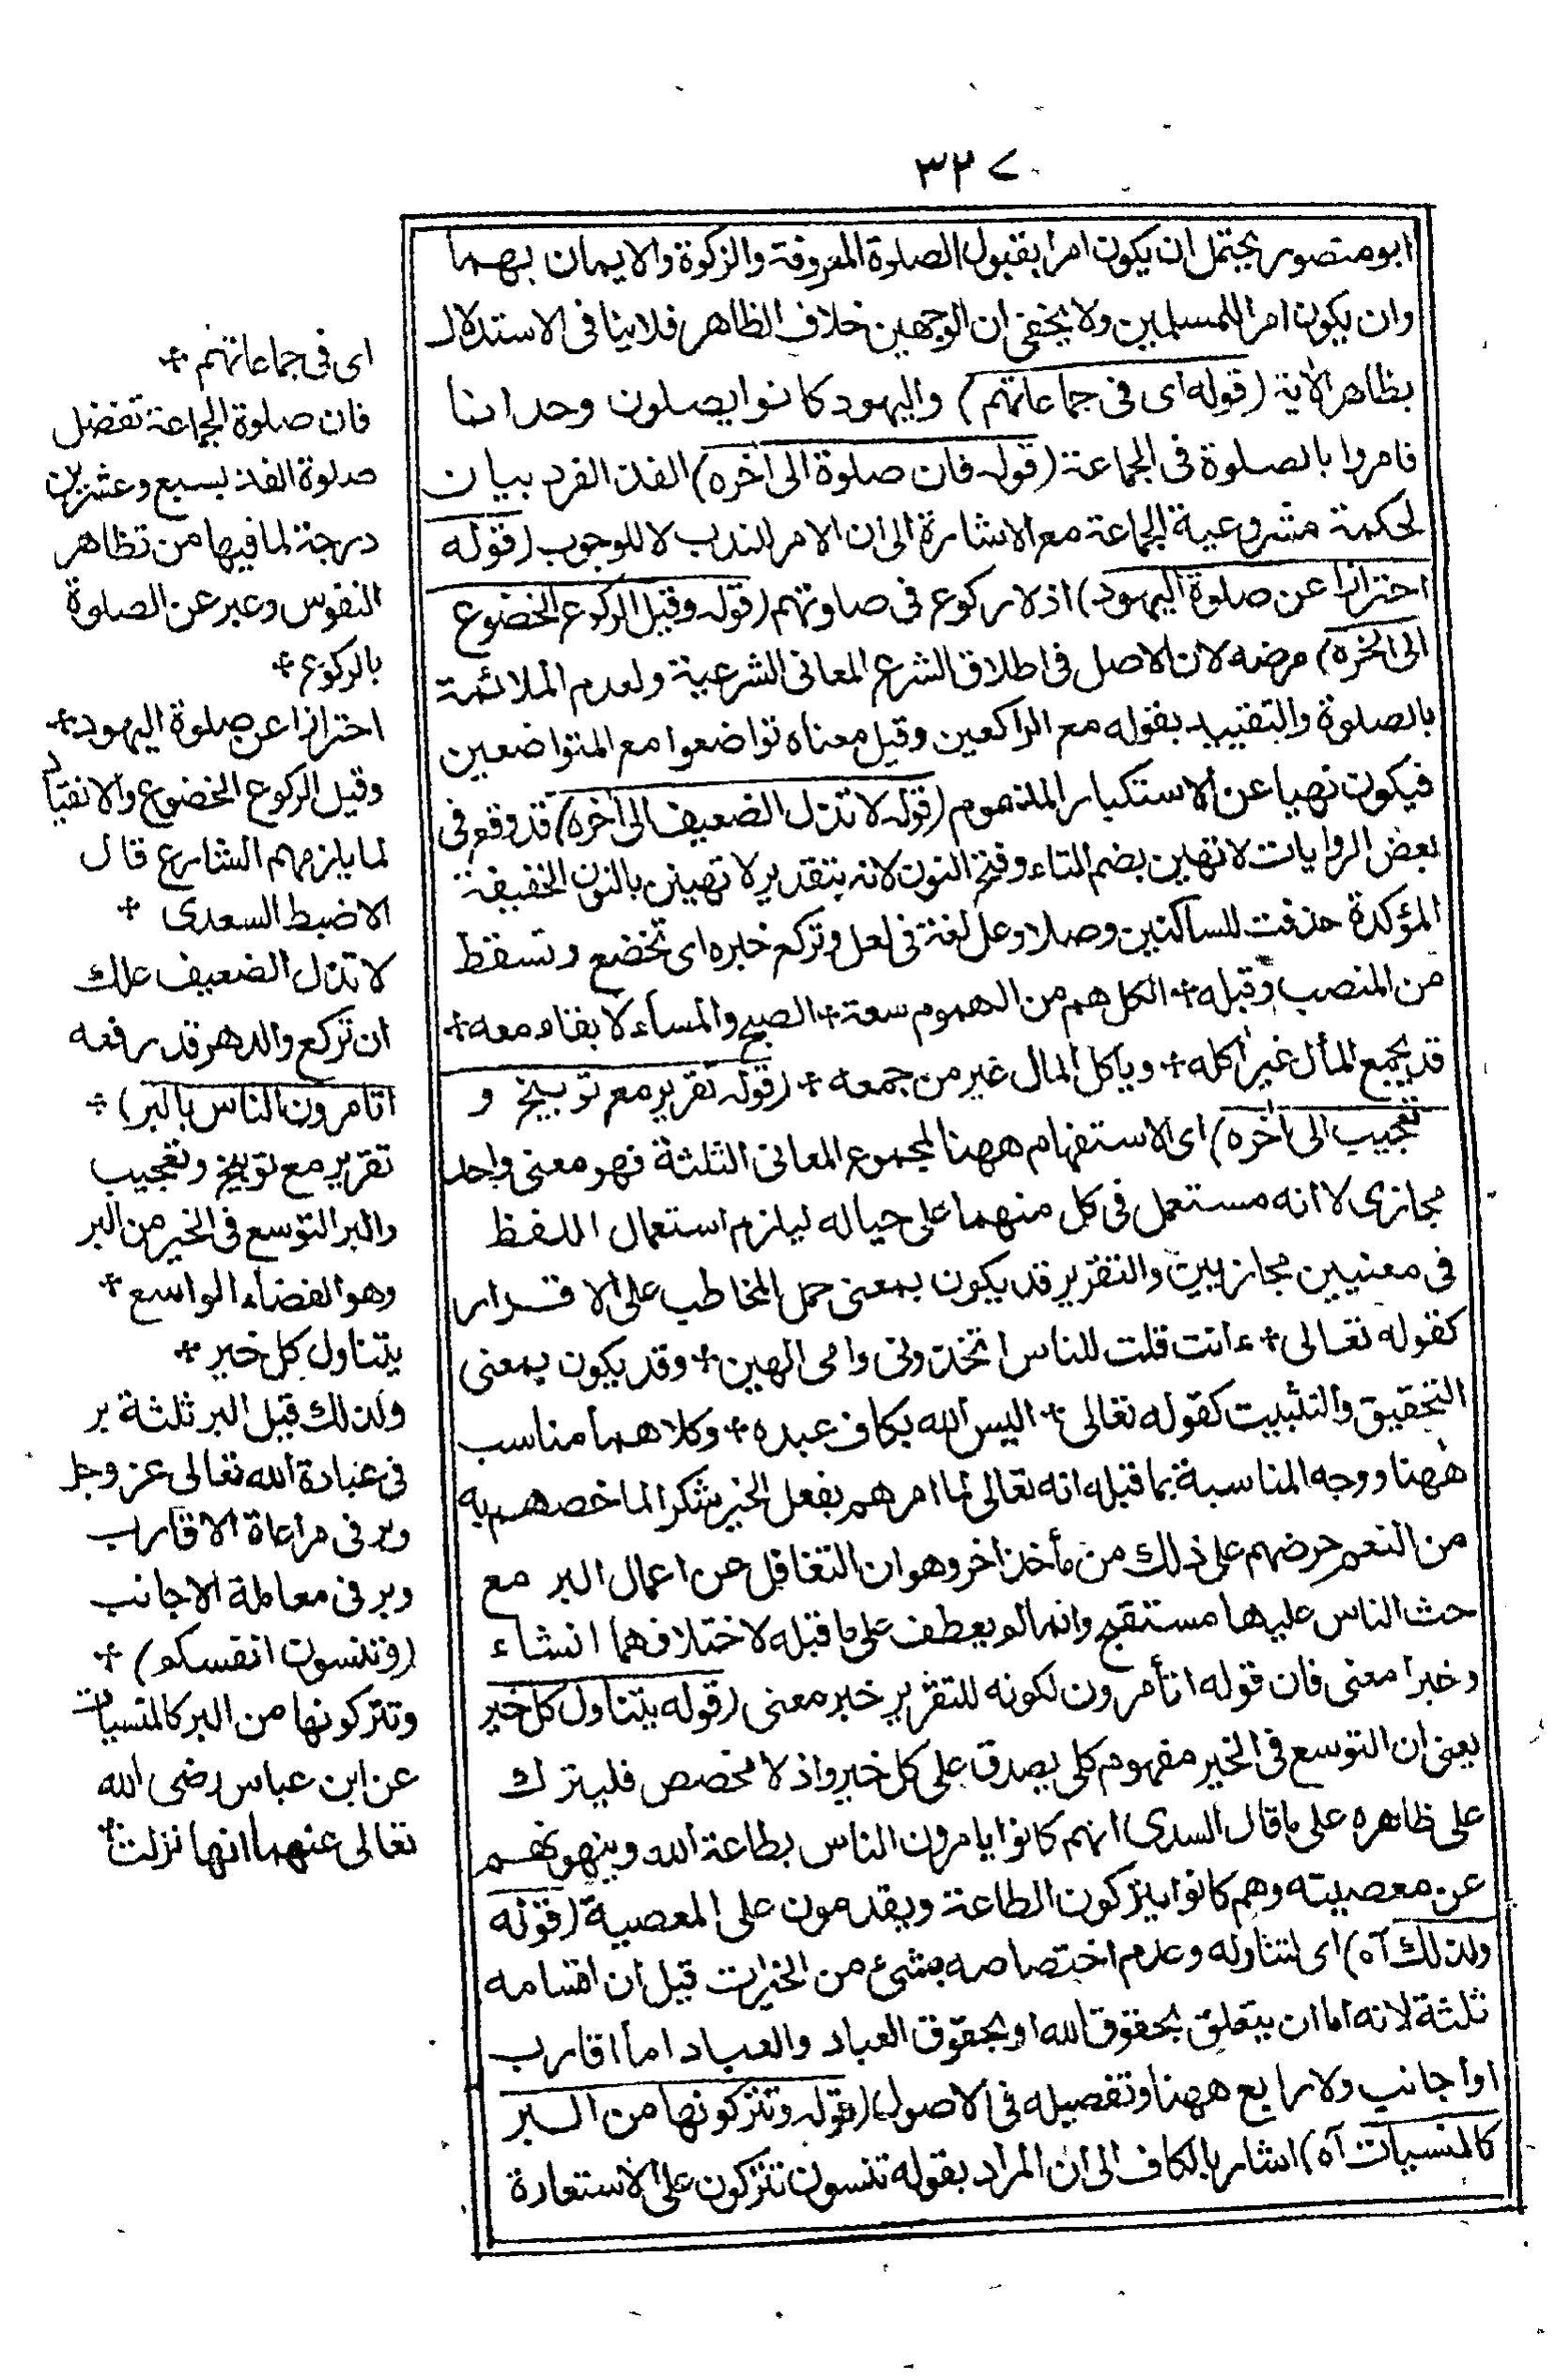 ٣٢٧
ابو منصور يحتمل ان يكون امرا بقبول الصلوة المعروفة والزكوة والايمان بهما
وان يكون امرا للمسلمين ولا يخفى ان الوجهين خلاف الظاهر فلا ينافى الاستدلال
بظاهر الآية (قوله اى فى جماعاتهم) واليهود كانوا يصلون وحدانا
فامروا بالصلوة فى الجماعة (قوله فان صلوة الى آخره) الفذ الفرد بيان
لحكمة مشروعية الجماعة مع الاشارة الى ان الامر للندب لا للوجوب (قوله
احترازا عن صلوة اليهود) اذ لا ركوع فى صلوتهم (قوله وقيل الركوع الخضوع
الى آخره) مرضه لان الاصل فى اطلاق الشرع المعانى الشرعية ولعدم الملائمة
بالصلوة والتقييد بقوله مع الراكعين وقيل معناه تواضعوا مع المتواضعين
فيكون نهيا عن الاستكبار المذموم (قوله لا تذل الضعيف الى آخره) قد وقع فى
بعض الروايات لا تهين بضم التاء وفتح النون لانه بتقدير لا تهينن بالنون الخفيفة
المؤكدة حذفت للساكنين وصلا وعل لغة فى لعل وتركع خبره اى تخضع وتسقط
من المنصب وقبله + لكل هم من الهموم سعة + الصبح والمساء لا بقاء معه +
قد يجمع المال غير آكله + وياكل المال غير من جمعه + (قوله تقرير مع توبيخ و
تعجيب الى آخره) اى الاستفهام ههنا لمجموع المعانى الثلثة فهو معنى واحد
مجازى لا انه مستعمل فى كل منهما على حياله ليلزم استعمال اللفظ
فى معنيين مجازيين والتقرير قد يكون بمعنى حمل المخاطب على الاقرار
كقوله تعالى + ءانت قلت للناس اتخذونى وامى الهين + وقد يكون بمعنى
التحقيق والتثبيت كقوله تعالى + اليس الله بكاف عبده + وكلاهما مناسب
ههنا ووجه المناسبة بما قبله انه تعالى لما امرهم بفعل الخير شكرا لما خصهم به
من النعم حرضهم على ذلك من مأخذ اخر وهو ان التغافل عن اعمال البر مع
حث الناس عليها مستقبح وانما لم يعطف على ما قبله لاختلافهما انشاء
وخبرا معنى فان قوله اتأمرون لكونه للتقرير خبر معنى (قوله يتناول كل خير
يعنى ان التوسع فى الخير مفهوم كلى يصدق على كل خير واذ لا مخصص فليترك
على ظاهره على ما قال السدى انهم كانوا يامرون الناس بطاعة الله وينهونهم
عن معصيته وهم كانوا يتركون الطاعة ويقدمون على المعصية (قوله
ولذلك آه) اى لتناوله وعدم اختصاصه بشئ من الخيرات قيل ان اقسامه
ثلثة لانه اما ان يتعلق بحقوق الله او بحقوق العباد والعباد اما اقارب
او اجانب ولا رابع ههنا وتفصيله فى الاصول (قوله وتتركونها من البر
كالمنسيات آه) اشار بالكاف الى ان المراد بقوله تنسون تتركون على الاستعارة
اى فى جماعاتهم +
فان صلوة الجماعة تفضل
صلوة الفذ بسبع وعشرين
درجة لما فيها من تظاهر
النفوس وعبر عن الصلوة
بالركوع +
احترازا عن صلوة اليهود +
وقيل الركوع الخضوع والانقياد
لما يلزمهم الشارع قال
الاضبط السعدى +
لا تذل الضعيف علك
ان تركع والدهر قد رفعه
(اتامرون الناس بالبر) +
تقرير مع توبيخ وتعجيب
والبر التوسع فى الخير من البر
وهو الفضاء الواسع +
يتناول كل خير +
ولذلك قيل البر ثلثة بر
فى عبادة الله تعالى عز وجل
وبر فى مراعاة الاقارب
وبر فى معاملة الاجانب
(وتنسون انفسكم) +
وتتركونها من البر كالمنسيات
عن ابن عباس رضى الله
تعالى عنهما انها نزلت